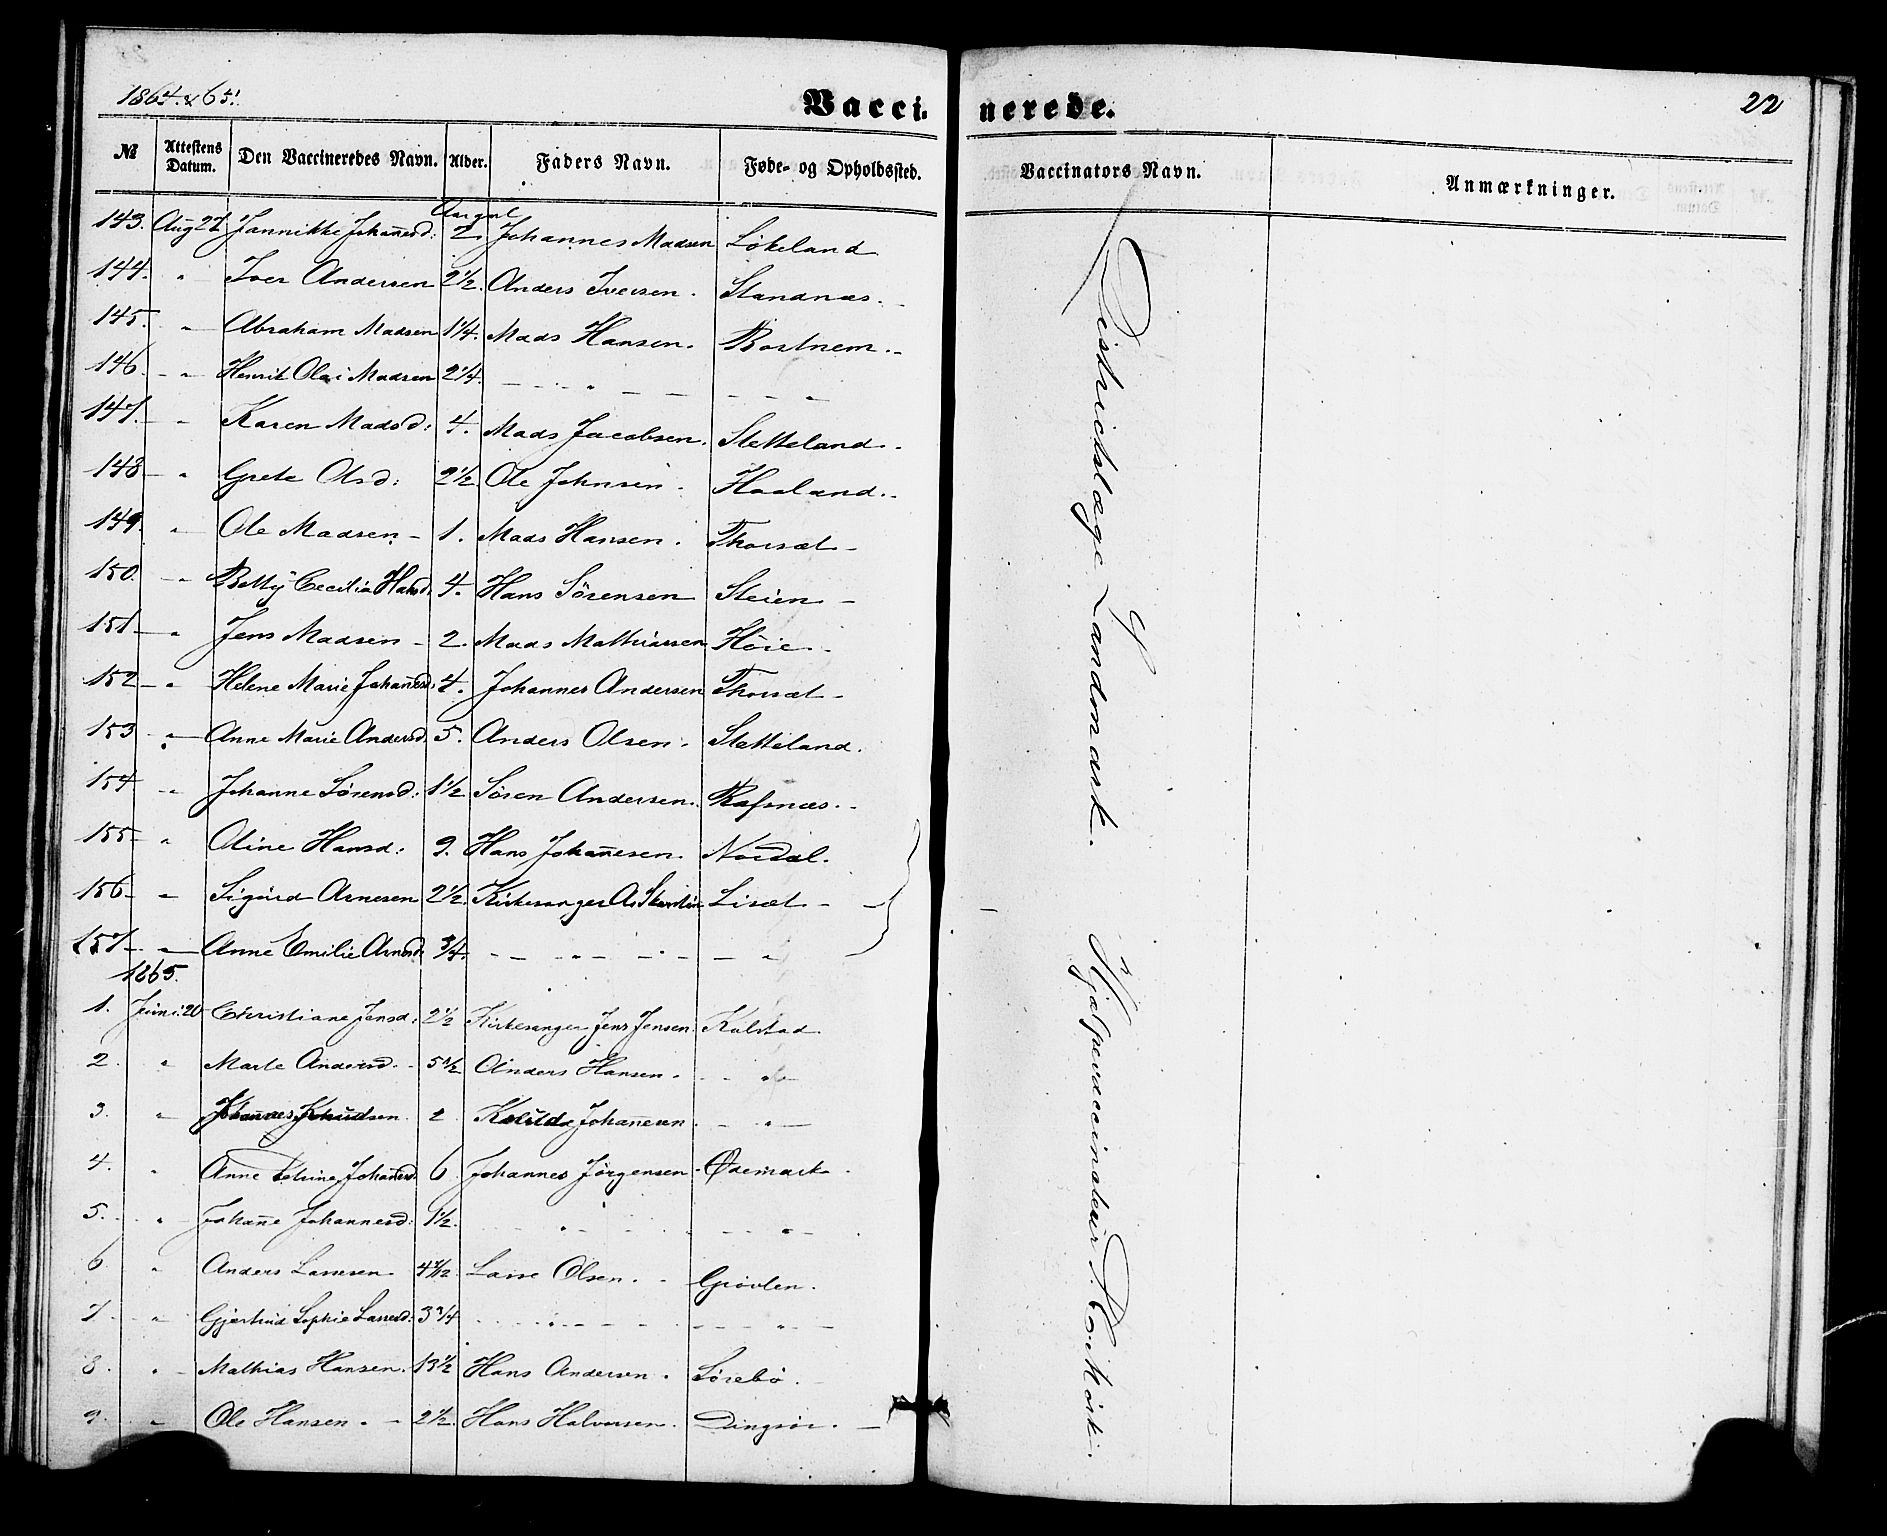 1864 & 65.
Vaccinerede.
22
№ Attestens Datum. Den Vaccineredes Navn. Alder. Faders Navn. Føde- og Opholdssted. Vaccinators Navn. Anmærkninger.
Aargml
143. Aug 27. Jannikke Johañesd: 2. Johannes Madsen Løkeland
144. " Iver Andersen 2½. Anders Iversen. Standnæs.
145. " Abraham Madsen 1¼. Mads Hansen. Rostnem.
146. " Henrik Olai Madsen 2¼. "
147. " Karen Madsd: 4. Mads Jacobsen. Sletteland.
148 " Grete Olsd: 2½. Ole Johnsen. Haaland.
149. " Ole Madsen 1. Mads Hansen. Thorsæt
150. " Betty Cecilia Hansd. 4. Hans Sørensen Steien
151 " Jens Madsen 2. Mads Mathiassen Høie
152 " Helene Marie Johañesd: 4. Johannes Andersen Thorsæt
153 " Anne Marie Andersd. 5. Anders Olsen. Sletteland.
154 " Johanne Sørensd: 1½ Søren Andersen. Rafsnæs.
155 " Oline Hansd: 9. Hans Johañesen. Nordal.
156 " Sigurd Arnesen 2½. Kirkesanger A. Liset
157 " Anne Emilie Arnesd. ¾. " "
1865.
1. Juni 20 Christiane Jensd: 2½ Kirkesanger Jens Jensen Kalstad
2. " Marte Andersd. 5½ Anders Hansen. "
3. " Johannes Knudsen. 2 Johañesen "
4. " Anne Johañesd. 6 Johannes Jørgensen Ødemark.
5. " Johañe Johannesd: 1½. " "
6 " Anders Larssen 4 Lasse Olsen. Grøvlen.
7. " Gjertrud Sophie Larsesd: 3¾ " "
8. " Mathias Hansen. 13½ Hans Andersen. Sørebø.
9. " Ole Hansen. 2½. Hans Halvorsen. Dingsør.
Districtslæge Landmark.
Hjælpevaccinateur R. C. Mørk.